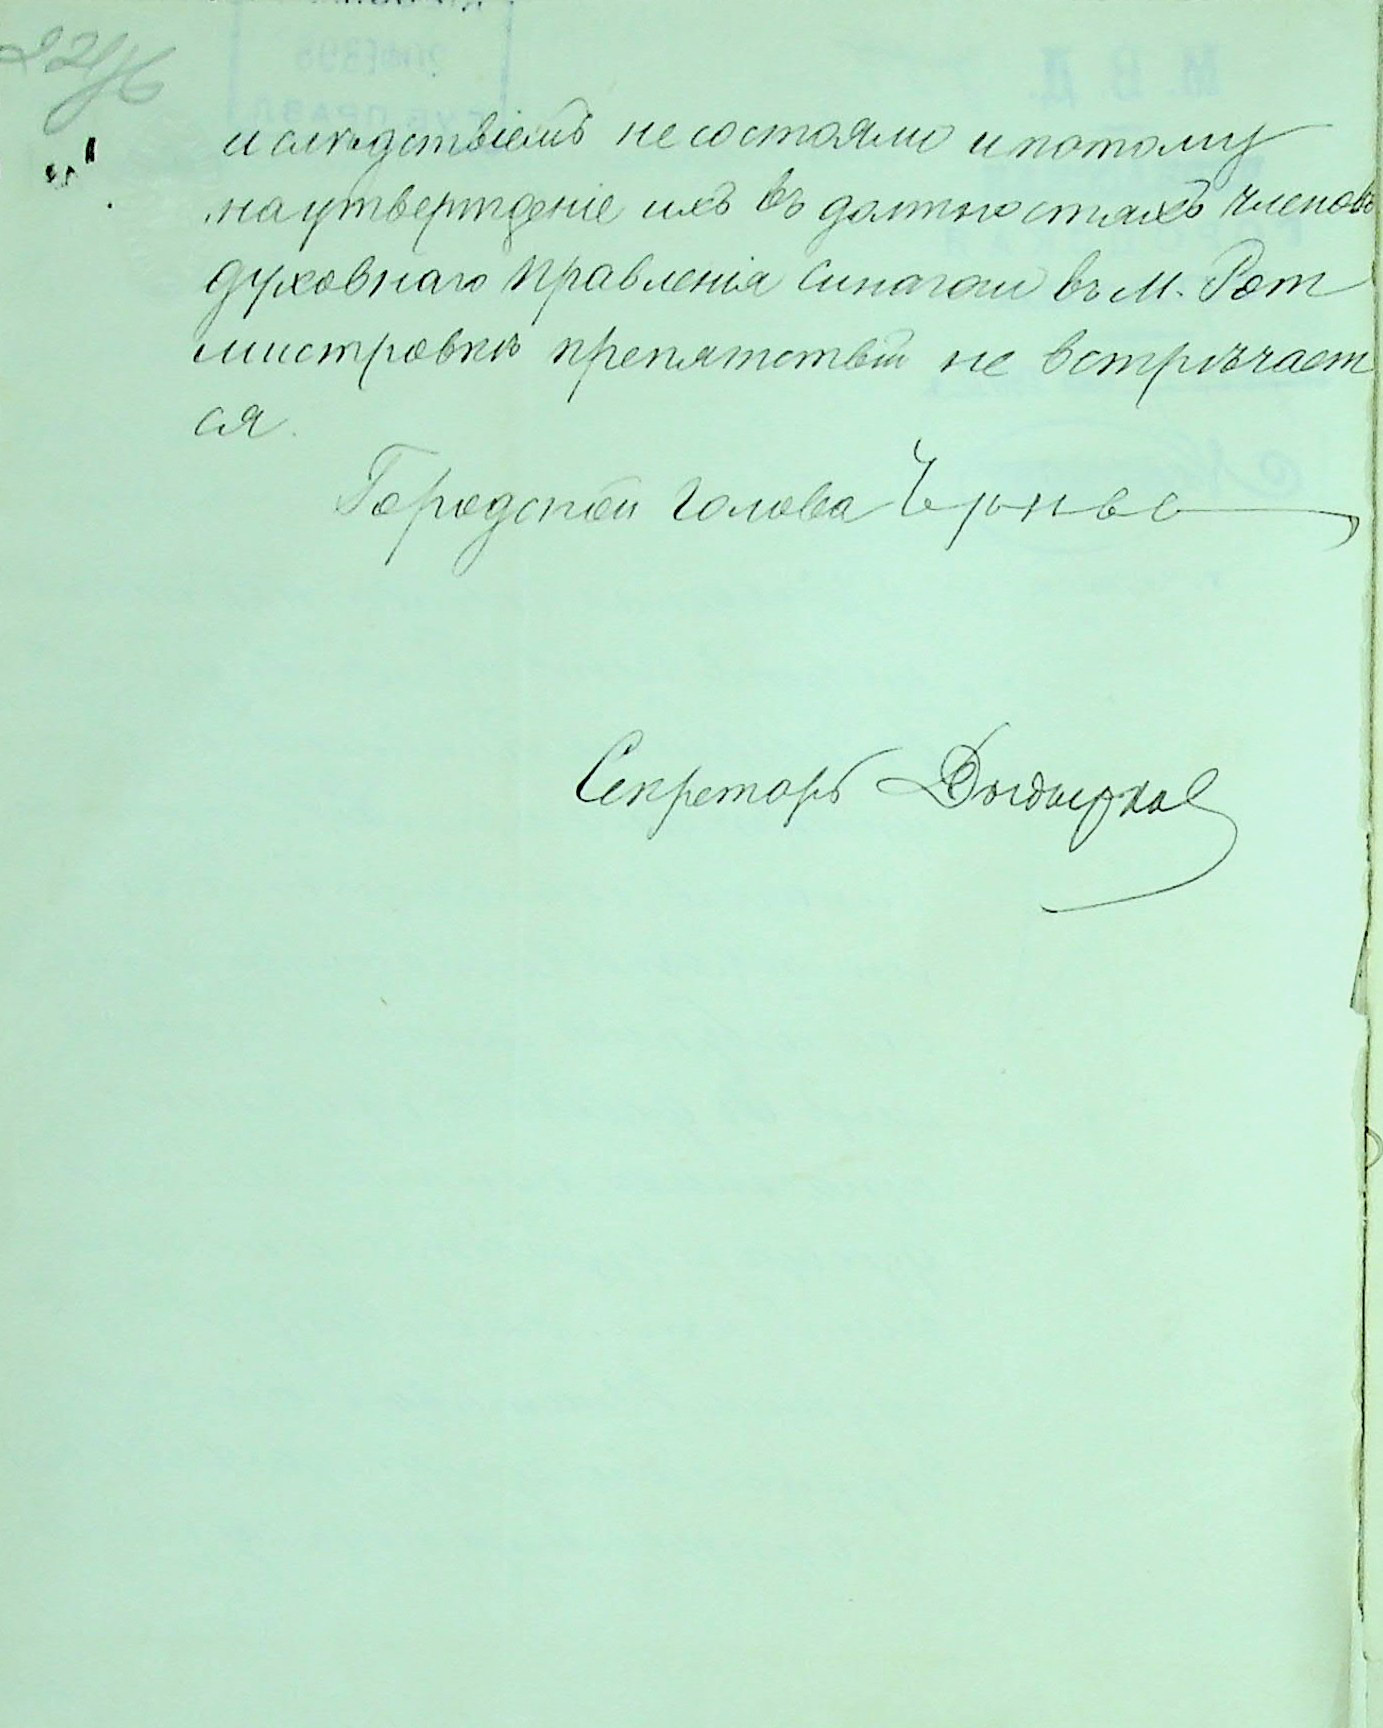 и слѣдствіемъ не состояли и потому
на утвержденіе ихъ въ должностяхъ членовъ
духовнаго правленія синагоги въ м. Рот
мистровкѣ препятствій не встрѣчает
ся.
Городской Голова
Секретарь